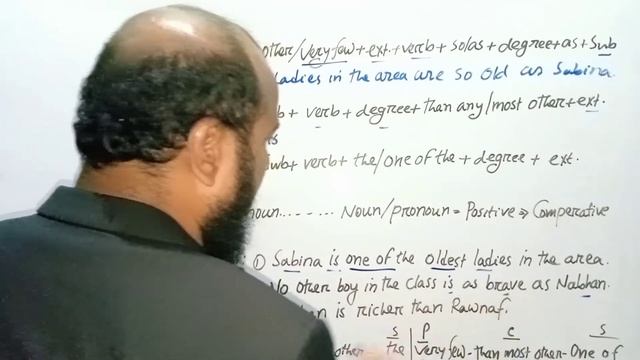 other/very few + ext. + verb + so/as + degree + as + Sub
ladies in the area are so old as Sabina.
+ verb + degree + than any/most other + ext.
+ verb + the/one of the + degree + ext.
Noun/pronoun = Positive ⇒ Comperative
① Sabina is one of the oldest ladies in the area.
No other boy in the class is as brave as Nabhan.
is richer than Rawnaf.
S P C S
other the | very few - than most other - One of